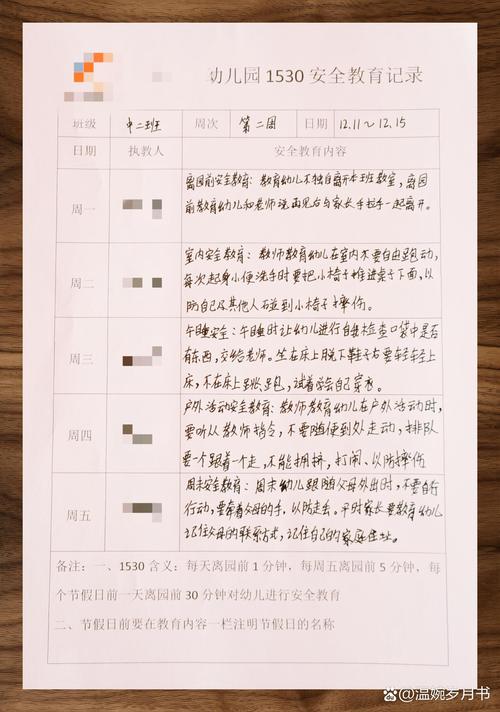 幼儿园1530安全教育记录
班级 中二班 周次 第二周 日期 12.11~12.15
日期 执教人 安全教育内容
离园前安全教育：教育幼儿不独自离开本班教室，离园
周一
前教育幼儿和老师说再见后与家长手拉手一起离开。
室内安全教育：教师教育幼儿在室内不要自由跑动，
周二
每次起身小便洗手时要把小椅子推进桌子下面，以
防自己及其他人碰到小椅子摔伤。
午睡安全：午睡时让幼儿进行自我检查口袋中是否
周三
有东西，交给老师。坐在床上脱下鞋子后要轻轻轻上
床，不在床上跳、跑，试着学会自己穿衣。
户外活动安全教育：教师教育幼儿在户外活动时，
周四
要听从教师指令，不要随便到处走动，排队
要一个跟着一个走，不能拥挤，打闹、以防摔伤
周末安全教育：周末幼儿跟随父母外出时，不要自行
周五
行动，要牵着父母的手，以防走失，平时家长要教育幼儿
记住父母的联系方式，记住自己的家庭住址。
备注：一、1530 含义：每天离园前 1 分钟，每周五离园前 5 分钟，每
个节假日前一天离园前 30 分钟对幼儿进行安全教育
二、节假日前要在教育内容一栏注明节假日的名称
@温婉岁月书